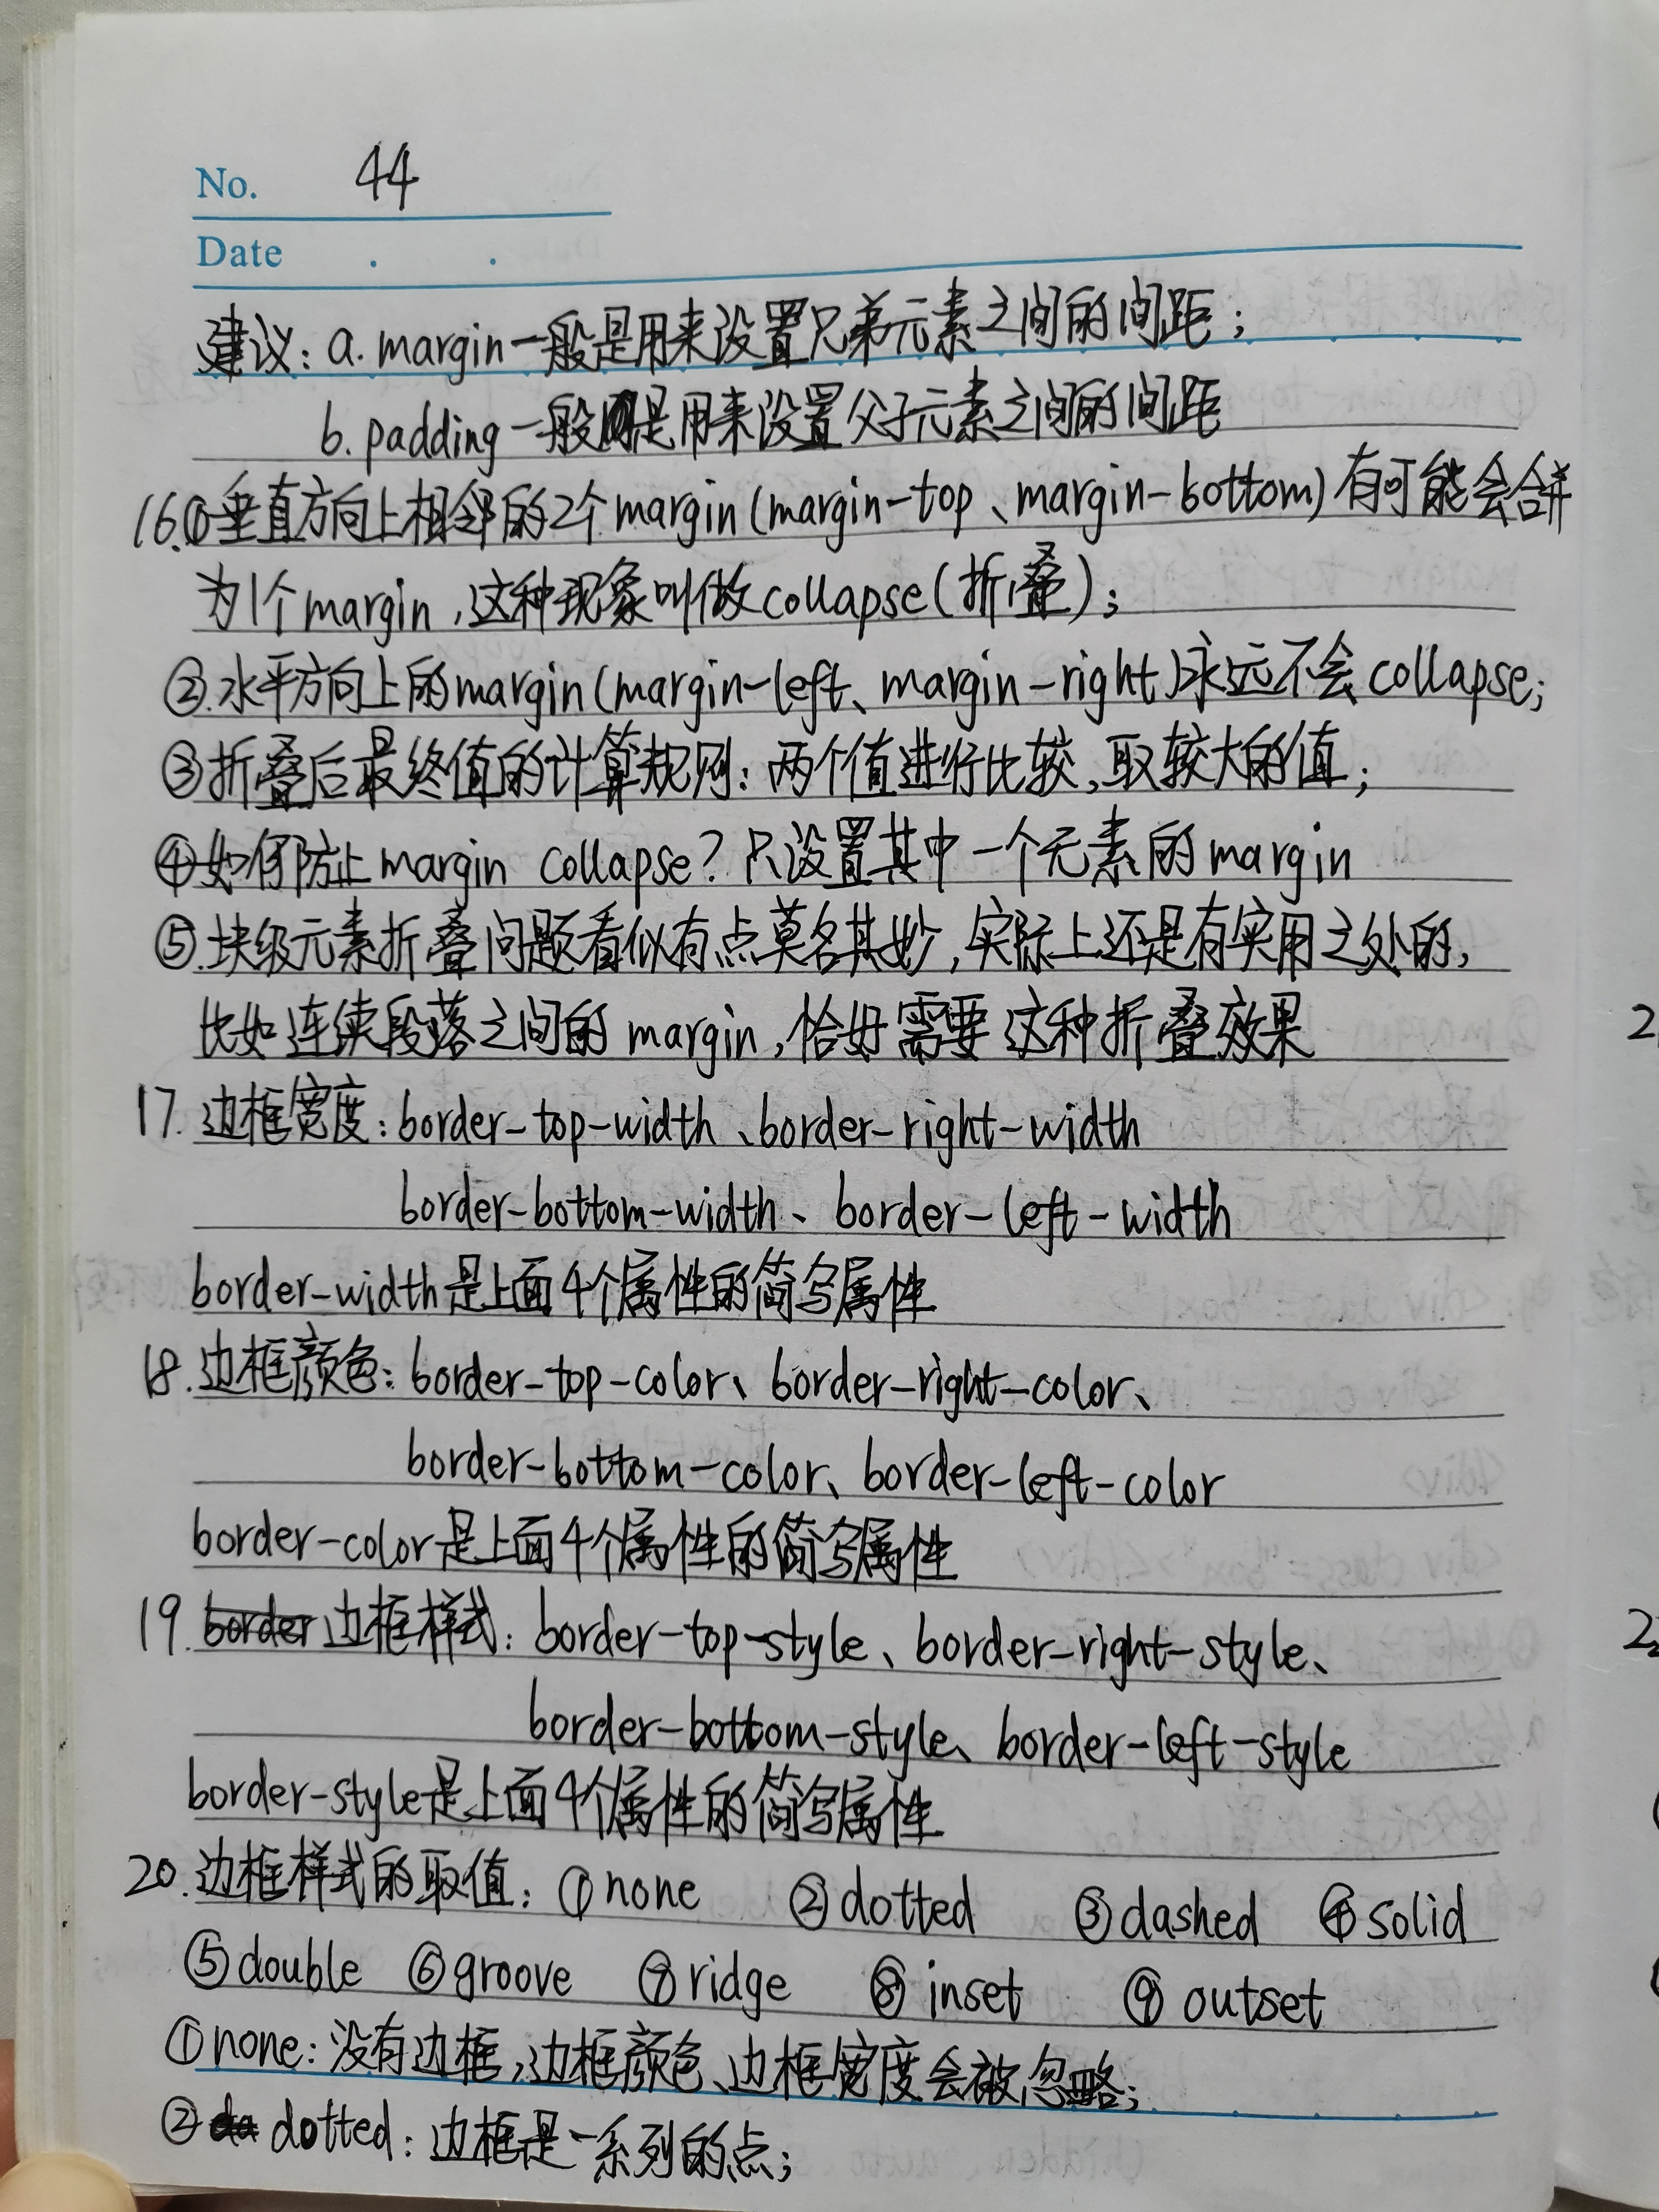 No. 44
Date . .
建议：a. margin一般是用来设置兄弟元素之间的间距；
b. padding一般是用来设置父子元素之间的间距
16.①垂直方向上相邻的2个margin(margin-top、margin-bottom)有可能会合并
为1个margin,这种现象叫做collapse(折叠)；
②.水平方向上的margin(margin-left、margin-right)永远不会collapse;
③折叠后最终值的计算规则：两个值进行比较,取较大的值；
④如何防止margin collapse？只设置其中一个元素的margin
⑤.块级元素折叠问题看似有点莫名其妙,实际上还是有实用之处的,
比如连续段落之间的margin,恰好需要这种折叠效果
17.边框宽度：border-top-width、border-right-width
border-bottom-width、border-left-width
border-width是上面4个属性的简写属性
18.边框颜色：border-top-color、border-right-color、
border-bottom-color、border-left-color
border-color是上面4个属性的简写属性
19.border边框样式：border-top-style、border-right-style、
border-bottom-style、border-left-style
border-style是上面4个属性的简写属性
20.边框样式的取值：①none ②dotted ③dashed ④solid
⑤double ⑥groove ⑦ridge ⑧inset ⑨outset
①none：没有边框,边框颜色、边框宽度会被忽略；
②da dotted：边框是一系列的点；